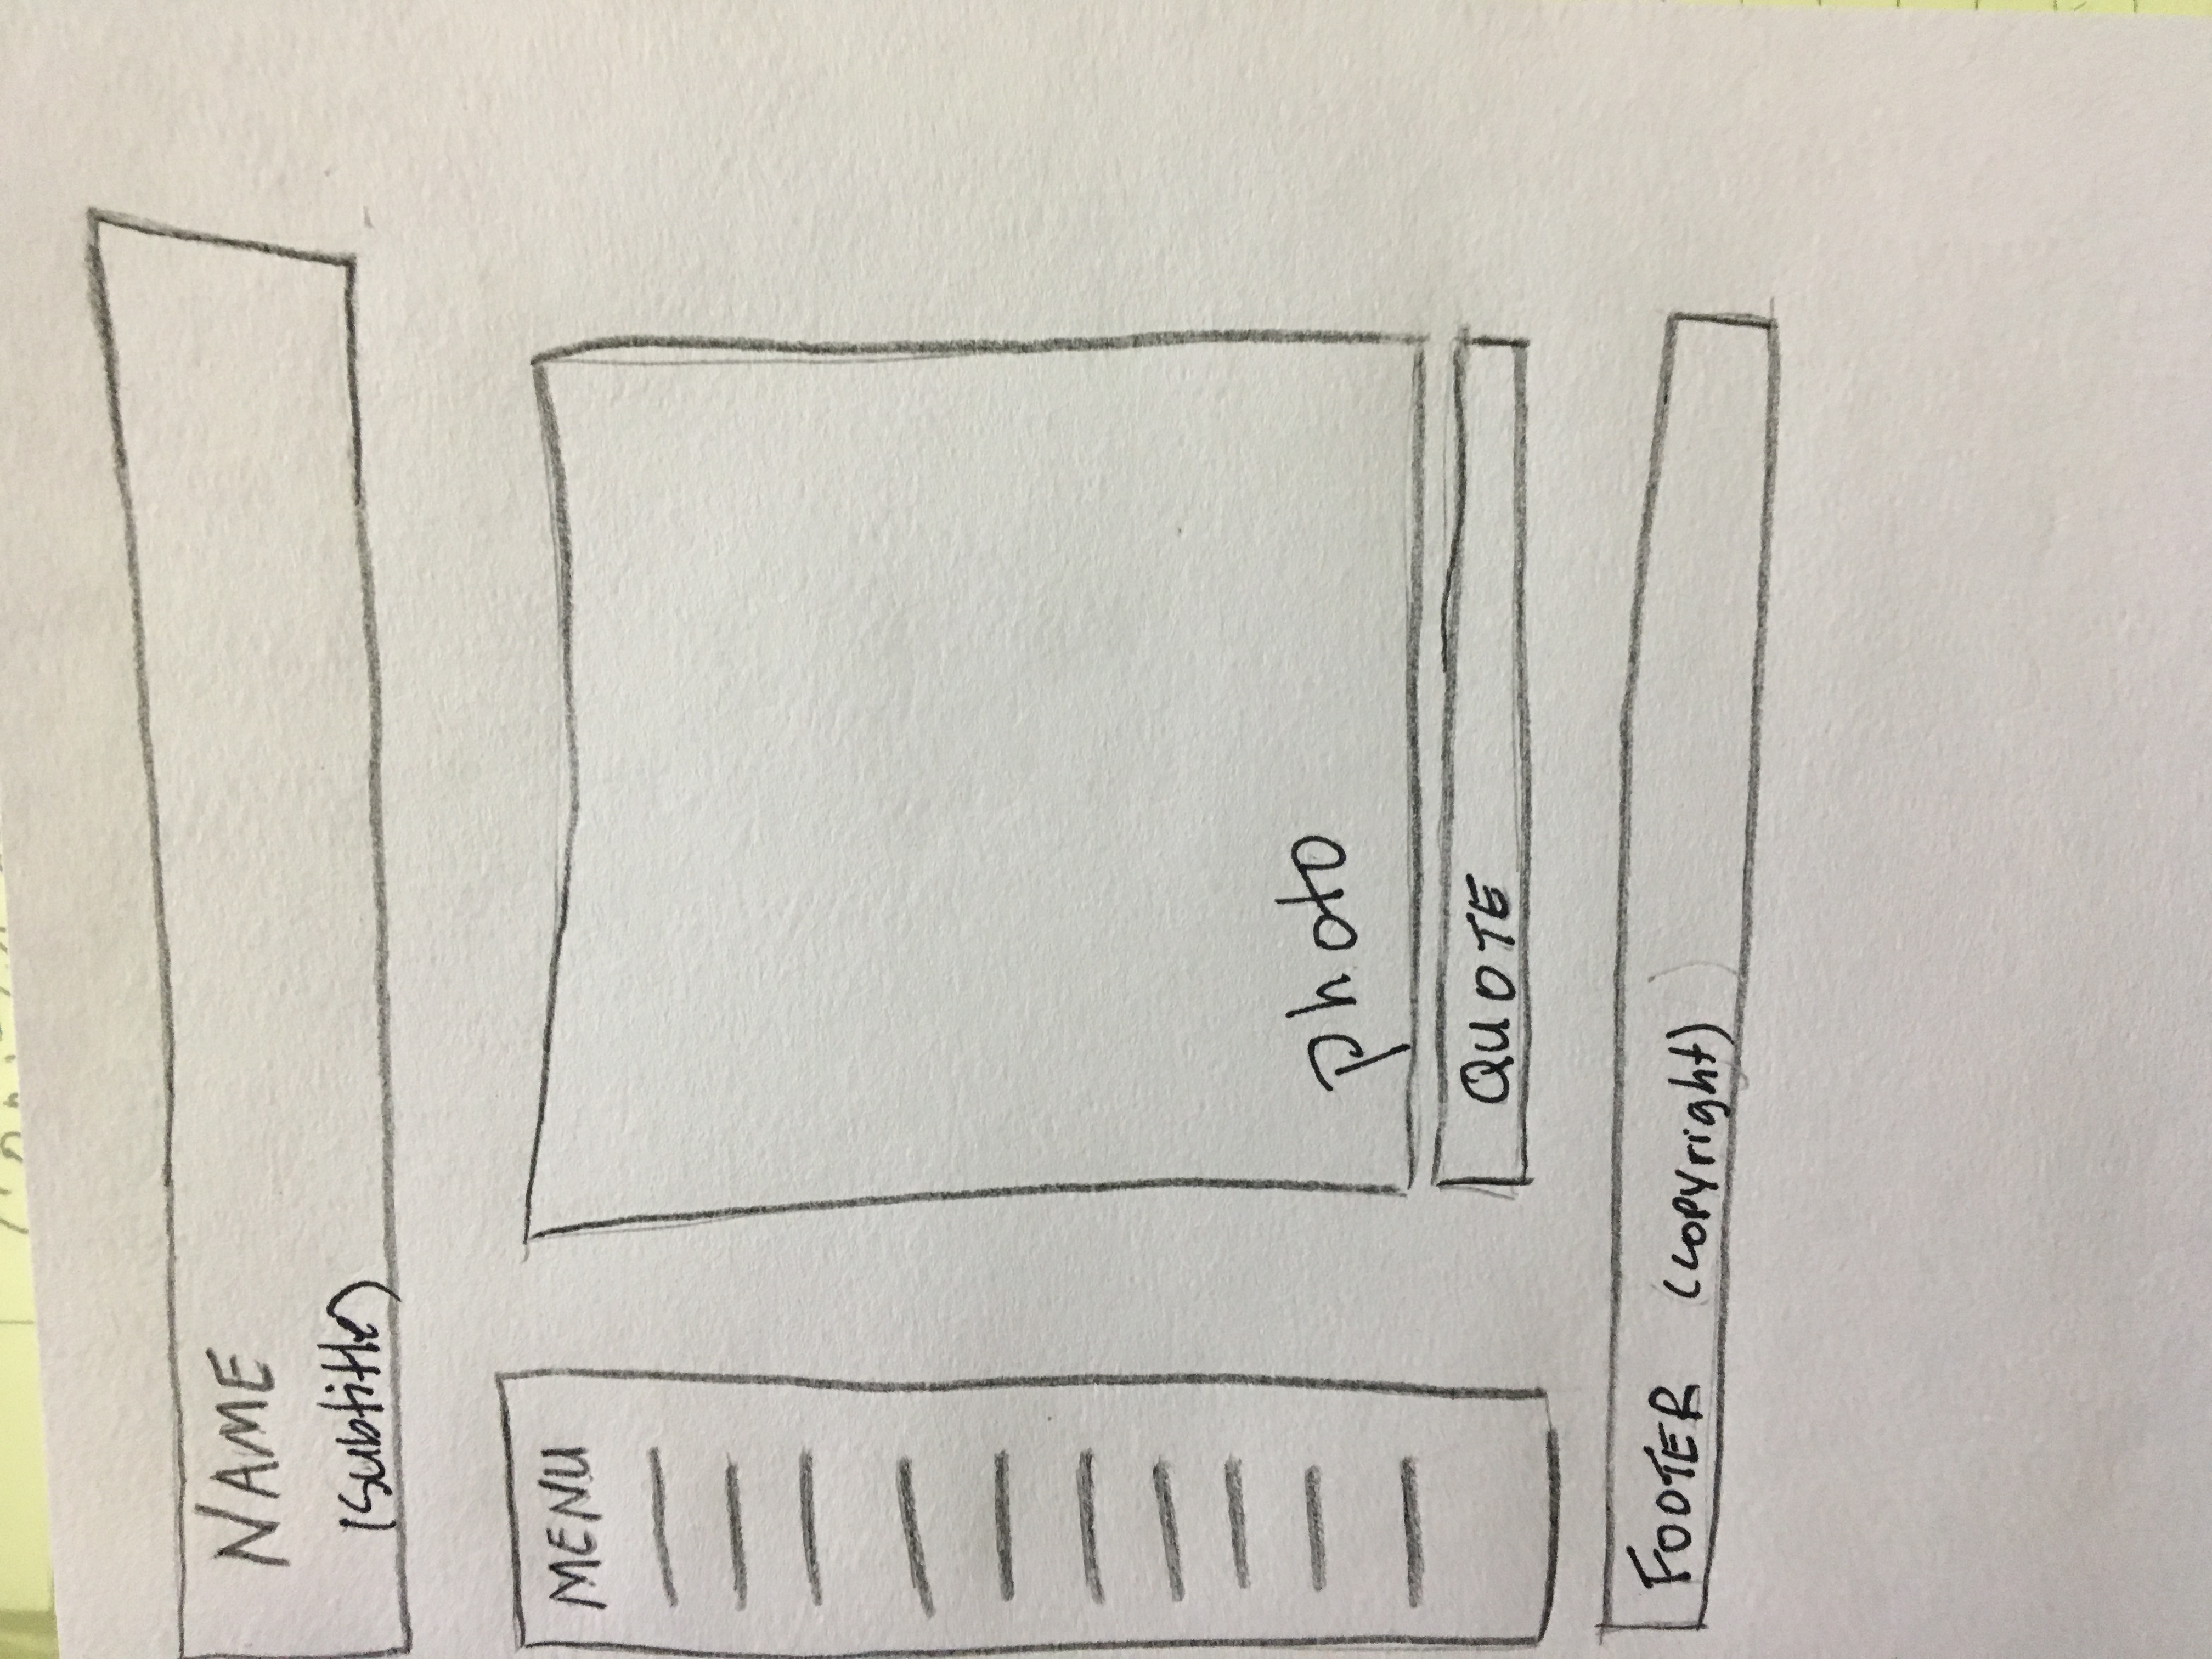 NAME
(subtitle)
MENU
photo
QUOTE
FOOTER (copyright)